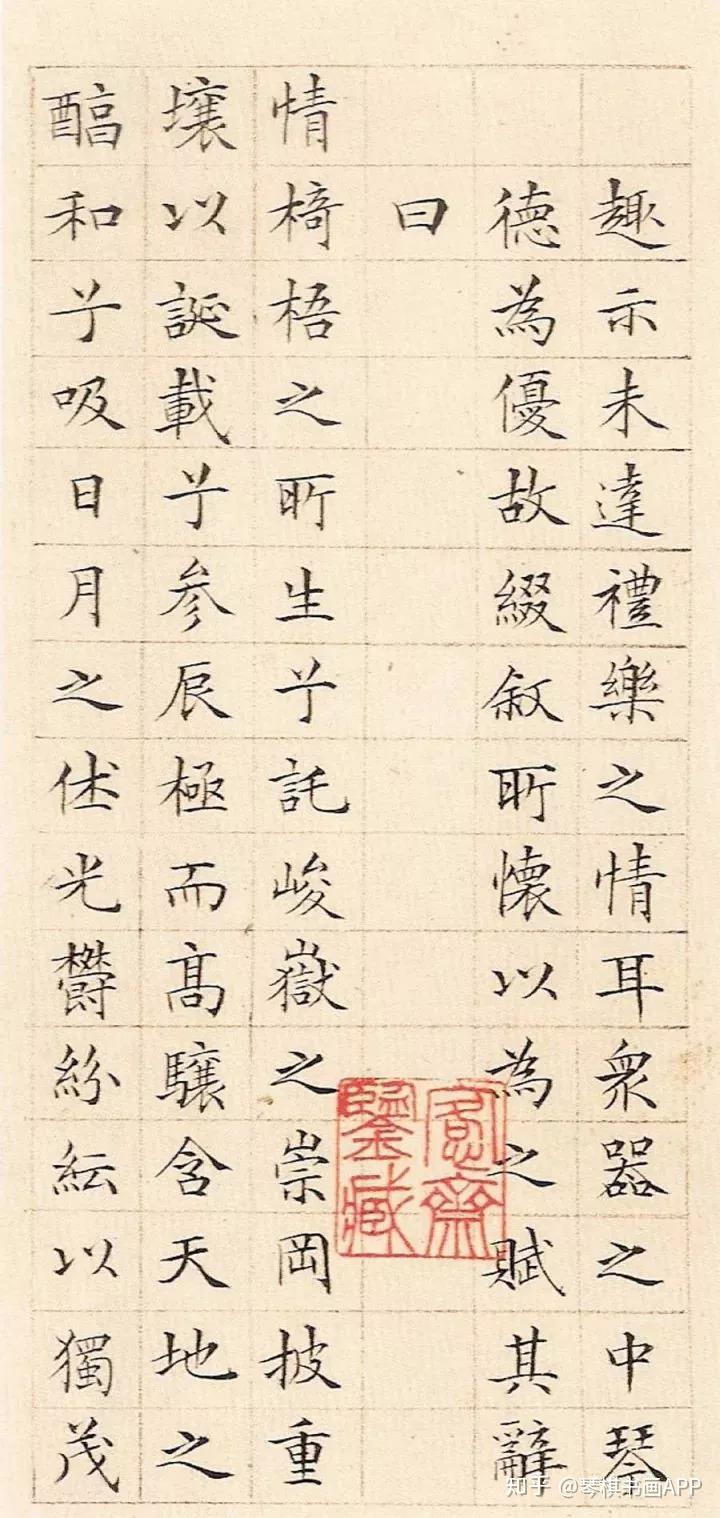 趣示未達禮樂之情耳眾器之中琴
德為優故綴叙所懷以為之賦其辭
曰
情椅梧之所生兮託峻嶽之崇岡披重
壤以誕載兮参辰極而髙驤含天地之
醕和兮吸日月之休光鬱紛紜以獨茂
愙齋
鑒藏
知乎 @琴棋书画APP